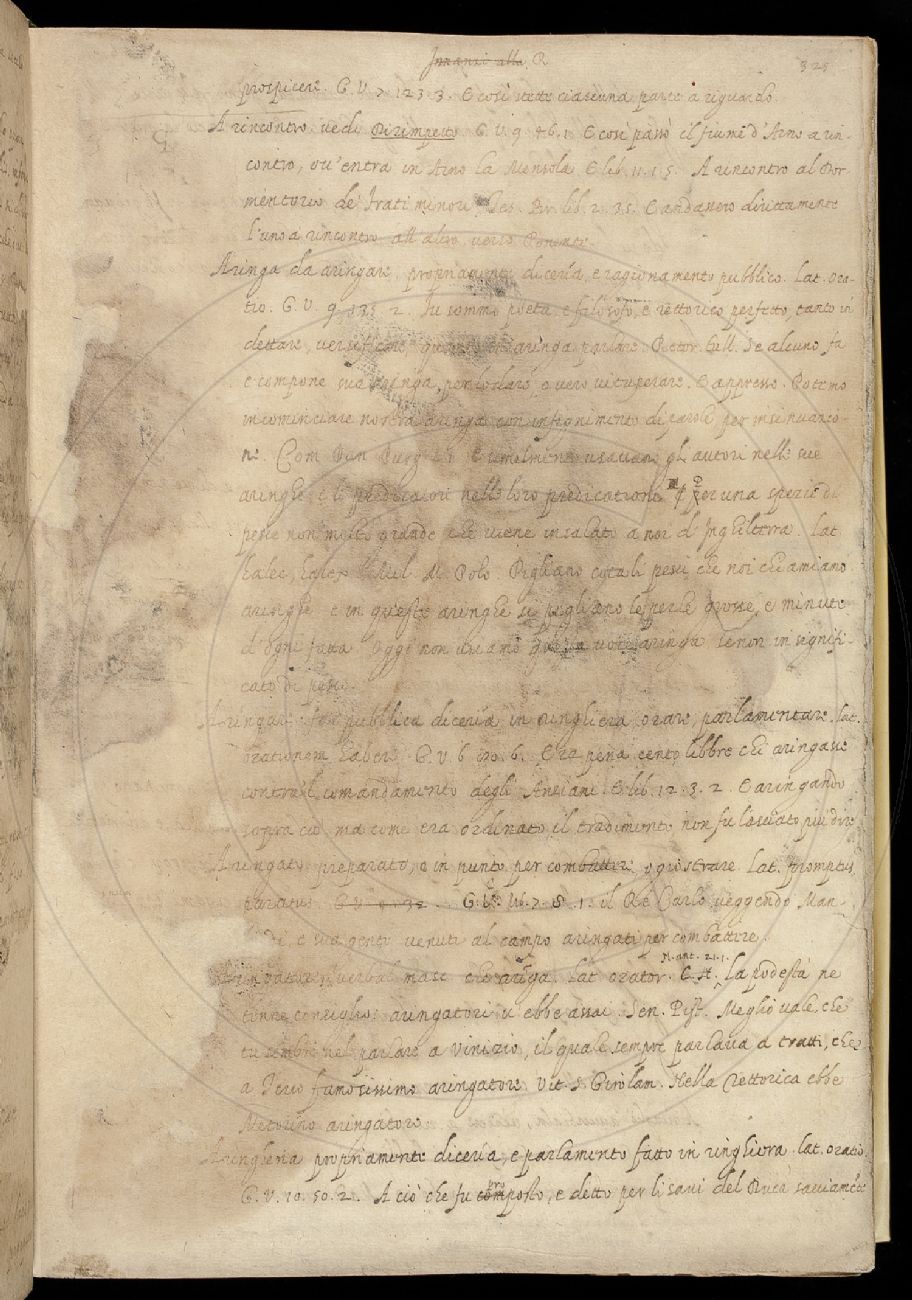 Innanzi alla R
325
prospicere. G.V. 7 123. 3. E così stette ciascuna parte a riguardo
A rincontro vedi Dirimpetto G. V. 9 46. 1 E così passò il fiume d'Arno a rin-
contro, ov'entra in Arno la Mensola E lib. 11. 1. 5. A rincontro al Dor-
mentorio de' Frati minori lib. 2. 35. E andavero dirittamente
l'uno a rincontro all'altro verso Ponente.
Aringa da aringare, propriamente diceria, e ragionamento pubblico. Lat. ora-
tio. G. V. 9 135 2. Fu sommo poeta e filosofo, e rettorico perfetto, tanto in
dettare, versificare, aringa parlare. Retor. Tull. Se alcuno fa
e compone sua aringa, per lodare, o vero vituperare. E appresso. Potemo
incominciare nostra aringa con infignimento di parole per insinuazio-
ne. Com Dan Purg E similmente usavano gli autori nelle sue
aringhe e li predicatori nelle loro predicationi per una spezie di
pesce non molto grande che viene insalato a noi d'Inghilterra. Lat.
halec, Mil. M. Polo. Pigliano cotali pesci che noi chiamiamo
aringhe e in queste aringhe si pigliano le perle grosse, e minute
d'ogni fatta. Oggi non usiamo questa voce aringa se non in signifi-
cato di pesce.
Aringare far pubblica diceria in ringhiera, orare, parlamentare. lat.
orationem habere. G. V. 6 6. Era pena cento libbre chi aringasse
contra'l comandamento degli Anziani E lib. 12. 3. 2. E aringando
sopra ciò, ma come era ordinato il tradimento non fu lasciato più dire
Aringato preparato, e in punto per combattere, o giostrare. Lat. promptus,
paratus. G. V. 7. 8. 1. il Re Carlo veggendo Man-
e sua gente venuti al campo aringati per combattere.
Aringatore, verbal. masc. che aringa. lat. orator. N. ant. 21. 1. La podestà ne
tenne consiglio: aringatori v'ebbe assai. Sen. Pist. Meglio vale, che
tu sembri nel parlare a Vinizio, il quale sempre parlava a tratti, che
a Serio famosissimo aringatore. Vit. S. Girolam. Nella Rettorica ebbe
Vettorino aringatore
Aringheria propriamente diceria, e parlamento fatto in ringhiera. lat. oratio.
G. V. 10. 50. 2. A ciò che fu proposto, e detto per li savi del Duca saviamente